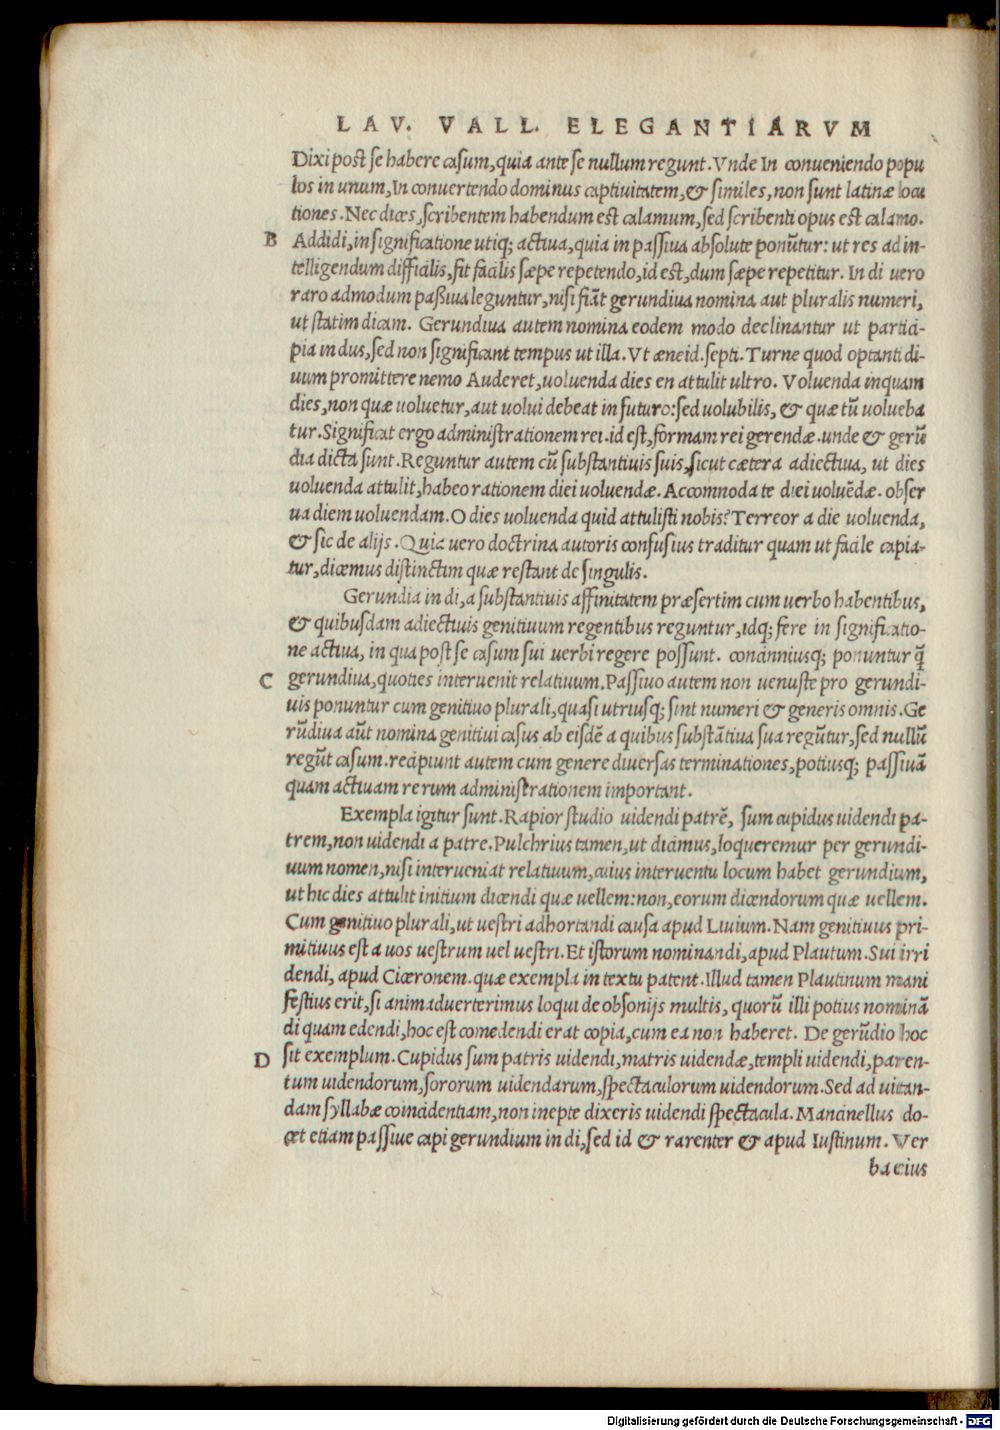 LAV. VALL. ELEGANTIARVM
Dixi post se habere casum, quia ante se nullum regunt. Vnde In conueniendo popu
los in unum, In conuertendo dominus captiuitatem, & similes, non sunt latinæ locu
tiones. Nec dices, scribentem habendum est calamum, sed scribenti opus est calamo.
B Addidi, in significatione utiq; actiua, quia in passiua absolute ponūtur: ut res ad in-
telligendum difficilis, fit facilis sæpe repetendo, id est, dum sæpe repetitur. In di uero
raro admodum paßiua leguntur, nisi fiāt gerundiua nomina aut pluralis numeri,
ut statim dicam. Gerundiua autem nomina eodem modo declinantur ut partici-
pia in dus, sed non significant tempus ut illa. Vt æneid. septi. Turne quod optanti di-
uum promittere nemo Auderet, uoluenda dies en attulit ultro. Voluenda inquam
dies, non quæ uoluetur, aut uolui debeat in futuro: sed uolubilis, & quæ tū uolueba
tur. Significat ergo administrationem rei. id est, formam rei gerendæ. unde & gerū
dia dicta sunt. Reguntur autem cū substantiuis suis, sicut cætera adiectiua, ut dies
uoluenda attulit, habeo rationem diei uoluendæ. Accommoda te diei uoluēdæ. obser
ua diem uoluendam. O dies uoluenda quid attulisti nobis? Terreor a die uoluenda,
& sic de alijs. Quia uero doctrina autoris confusius traditur quam ut facile capia-
tur, dicemus distinctim quæ restant de singulis.
Gerundia in di, a substantiuis affinitatem præsertim cum uerbo habentibus,
& quibusdam adiectiuis genitiuum regentibus reguntur, idq; fere in significatio-
ne actiua, in qua post se casum sui uerbi regere possunt. concinniusq; ponuntur q̄
C gerundiua, quoties interuenit relatiuum. Passiuo autem non uenuste pro gerundi-
uis ponuntur cum genitiuo plurali, quasi utriusq; sint numeri & generis omnis. Ge
rūdiua aūt nomina genitiui casus ab eisdē a quibus substātiua sua regūtur, sed nullū
regūt casum. recipiunt autem cum genere diuersas terminationes, potiusq; passiuā
quam actiuam rerum administrationem important.
Exempla igitur sunt. Rapior studio uidendi patrē, sum cupidus uidendi pa-
trem, non uidendi a patre. Pulchrius tamen, ut diximus, loqueremur per gerundi-
uum nomen, nisi interueniat relatiuum, cuius interuentu locum habet gerundium,
ut hic dies attulit initium dicendi quæ uellem: non, eorum dicendorum quæ uellem.
Cum genitiuo plurali, ut uestri adhortandi causa apud Liuium. Nam genitiuus pri-
mitiuus est a uos uestrum uel uestri. Et istorum nominandi, apud Plautum. Sui irri
dendi, apud Ciceronem. quæ exempla in textu patent. Illud tamen Plautinum mani
festius erit, si animaduerterimus loqui de obsonijs multis, quorū illi potius nominā
di quam edendi, hoc est comedendi erat copia, cum ea non haberet. De gerūdio hoc
D sit exemplum. Cupidus sum patris uidendi, matris uidendæ, templi uidendi, paren-
tum uidendorum, sororum uidendarum, spectaculorum uidendorum. Sed ad uitan-
dam syllabæ coincidentiam, non inepte dixeris uidendi spectacula. Mancinellus do-
cet etiam passiue capi gerundium in di, sed id & rarenter & apud Iustinum. Ver
ba eius
Digitalisierung gefördert durch die Deutsche Forschungsgemeinschaft - DFG